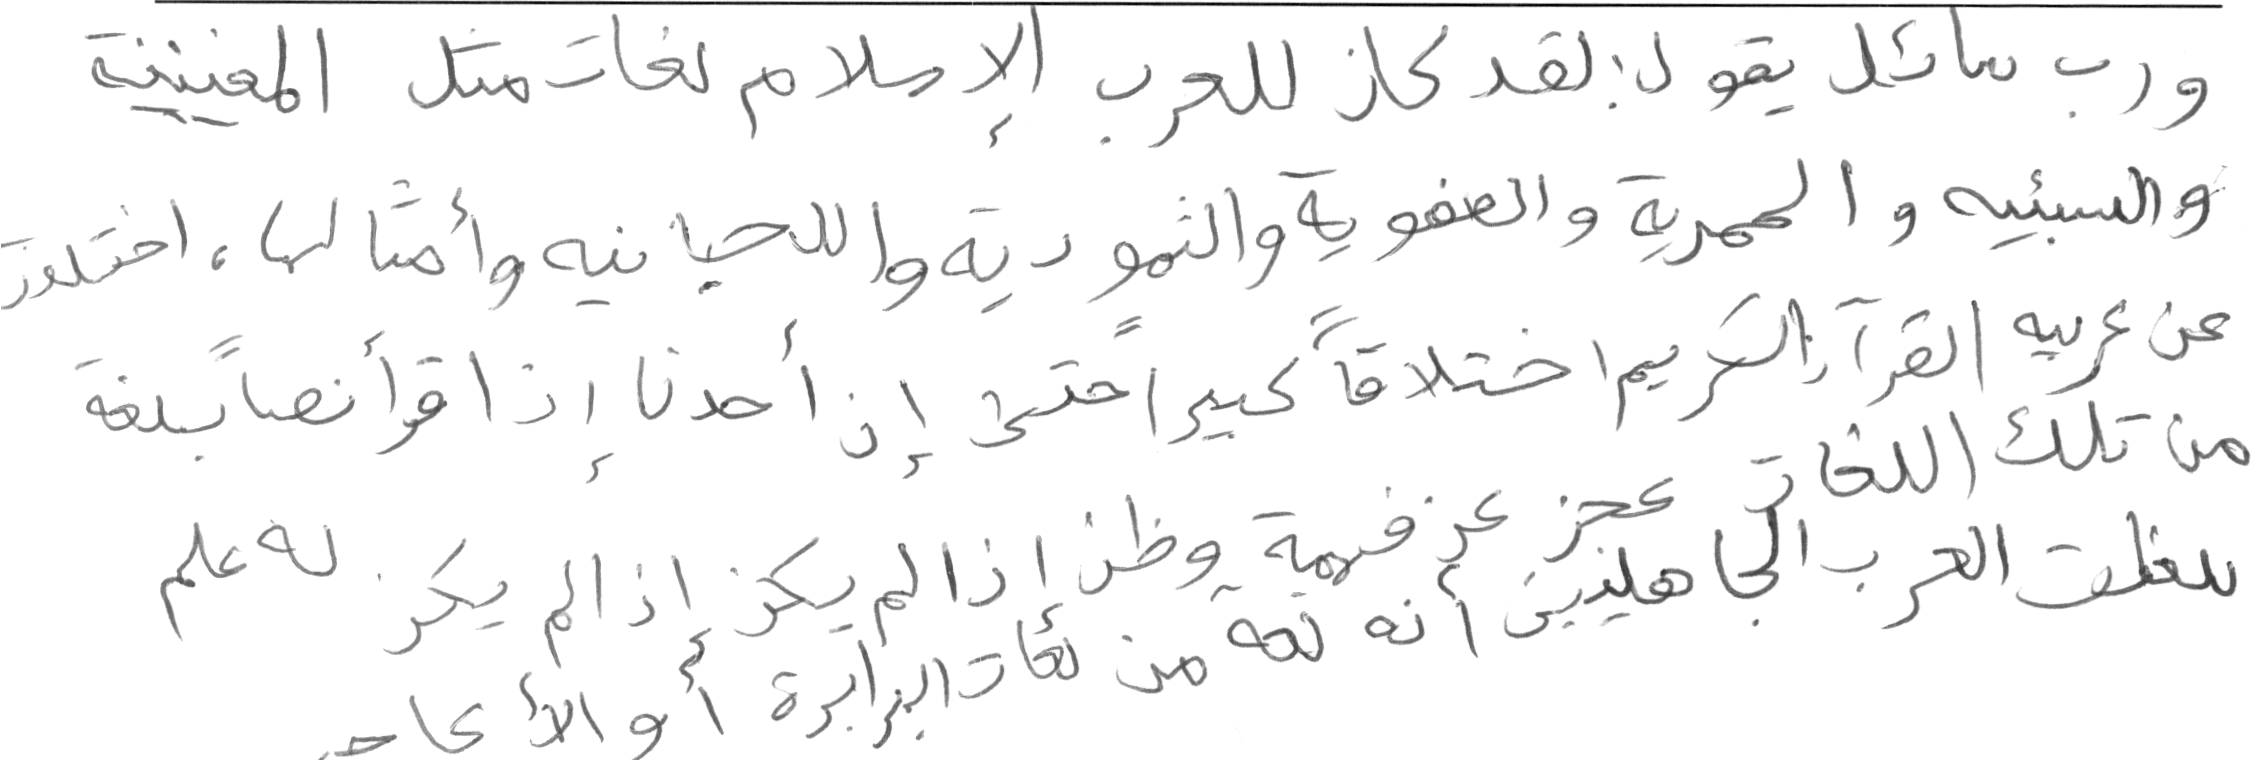 ورب سائل يقول: لقد كان للعرب الإسلام لغات مثل المعينية
والسبئيه و الحميرية والصفوية والثمودية واللحيانيه وأمثالها، اختلفت
عن عربيه القرآن الكريم اختلاقاً كبيراً حتى إن أحدنا إذا قرأ نصاً بلغة
من تلك اللغات عجز عن فهمة وظن إذا لم يكن إذا لم يكن له علم
بلغات العرب الجاهليين أنه لغة من لغات البرابرة أو الأعاجم